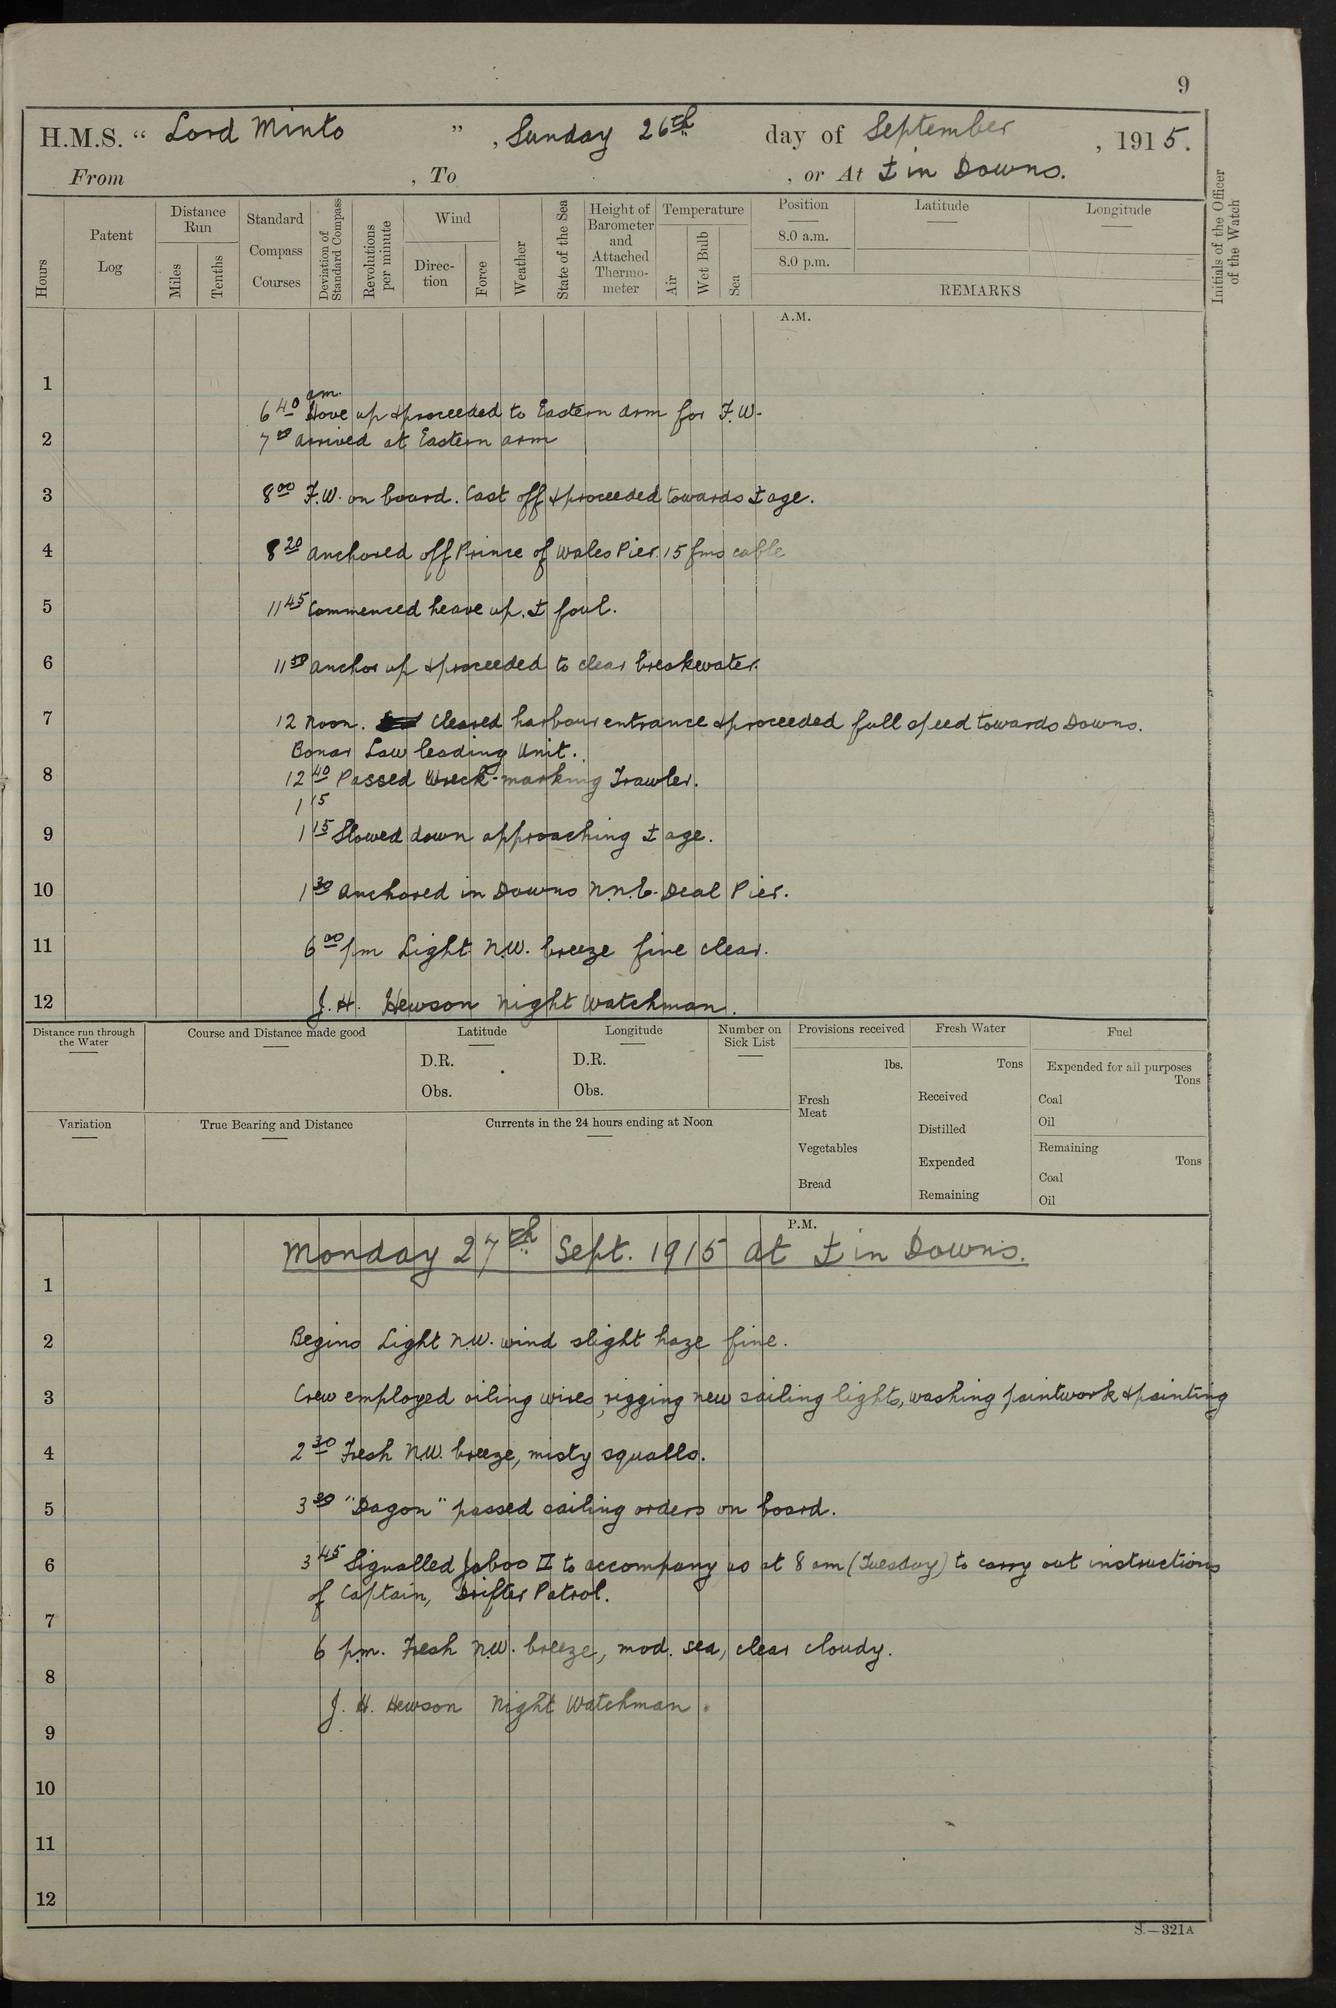 9
H.M.S. " Lord Minto " , Sunday 26th day of September , 1915.
From , To , or At ⚓ in Downs.
Hours
Patent Log
Distance Run
Miles
Tenths
Standard Compass Courses
Deviation of Standard Compass
Revolutions per minute
Wind
Direc-tion
Force
Weather
State of the Sea
Height of Barometer and Attached Thermo-meter
Temperature
Air
Wet Bulb
Sea
Position
8.0 a.m.
8.0 p.m.
Latitude
Longitude
REMARKS
Initials of the Officer of the Watch
A.M.
1
am.
6 40 Hove up & proceeded to Eastern arm for F.W.
2 7 arrived at Eastern arm
3 8 00 F.W. on board. Cast off & proceeded towards ⚓age.
4 8 20 anchored off Prince of Wales Pier. 15 fms cable
5 11 45 Commenced heave up. ⚓ foul.
6 11 anchor up & proceeded to clear breakwater.
7 12 Noon. cleared harbour entrance & proceeded full speed towards Downs.
Bonar Law leading Unit.
8 12 40 Passed Wreck-marking Trawler.
1 15
9 1 15 Slowed down approaching ⚓age.
10 1 30 anchored in Downs N.N.E. Deal Pier.
11 6 00 pm Light N.W. breeze fine clear.
12 J. H. Hewson Night Watchman.
Distance run through the Water
Course and Distance made good
Latitude
D.R.
Obs.
Longitude
D.R.
Obs.
Number on Sick List
Provisions received
lbs.
Fresh Meat
Vegetables
Bread
Fresh Water
Tons
Received
Distilled
Expended
Remaining
Fuel
Expended for all purposes
Tons
Coal
Oil
Remaining
Tons
Coal
Oil
Variation
True Bearing and Distance
Currents in the 24 hours ending at Noon
P.M.
Monday 27th Sept. 1915 at ⚓ in Downs.
1
2 Begins Light N.W. wind slight haze fine.
3 Crew employed oiling wires, rigging new sailing lights, washing paintwork & painting
4 2 30 Fresh N.W. breeze, misty squalls.
5 3 30 "Dagon" passed sailing orders on board.
6 3 45 Signalled Jaboo II to accompany us at 8 am (Tuesday) to carry out instructions
of Captain, Drifter Patrol.
7
6 pm. Fresh N.W. breeze, mod. sea, clear cloudy.
8
J. H. Hewson Night Watchman.
9
10
11
12
S.—321A